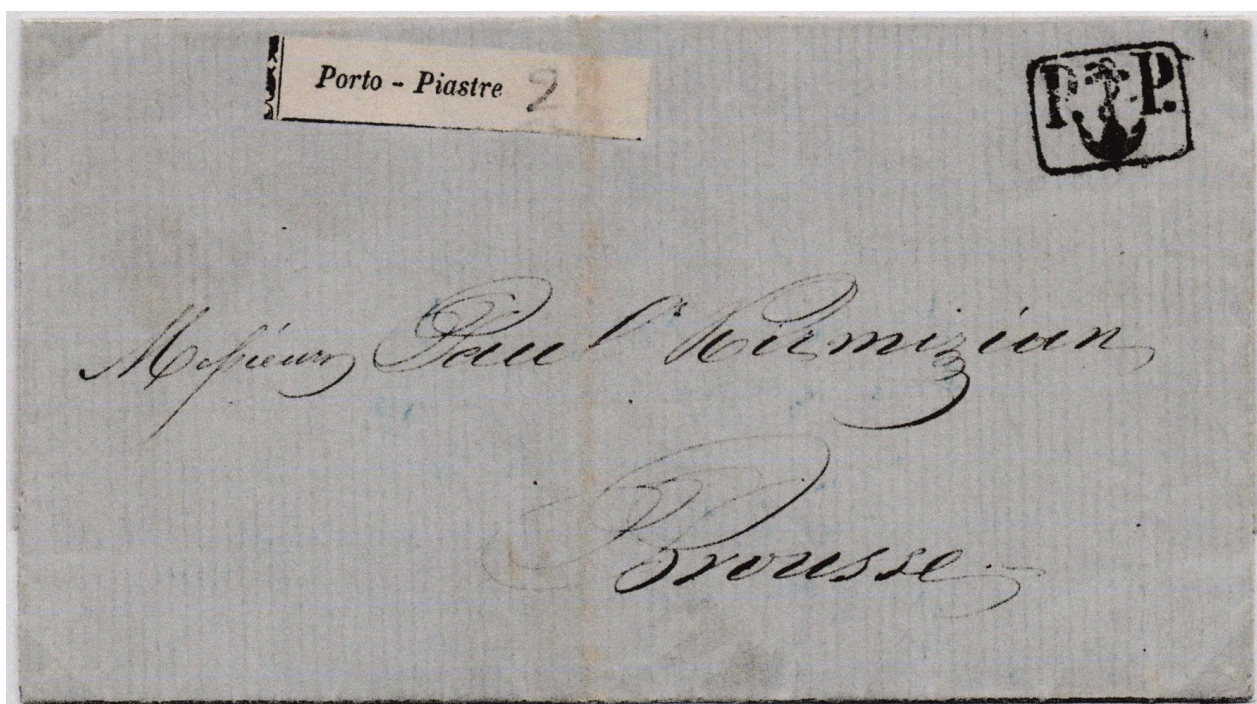 Porto - Piastre 2
P. P.
Messieurs Paul Hirmizian
Brousse